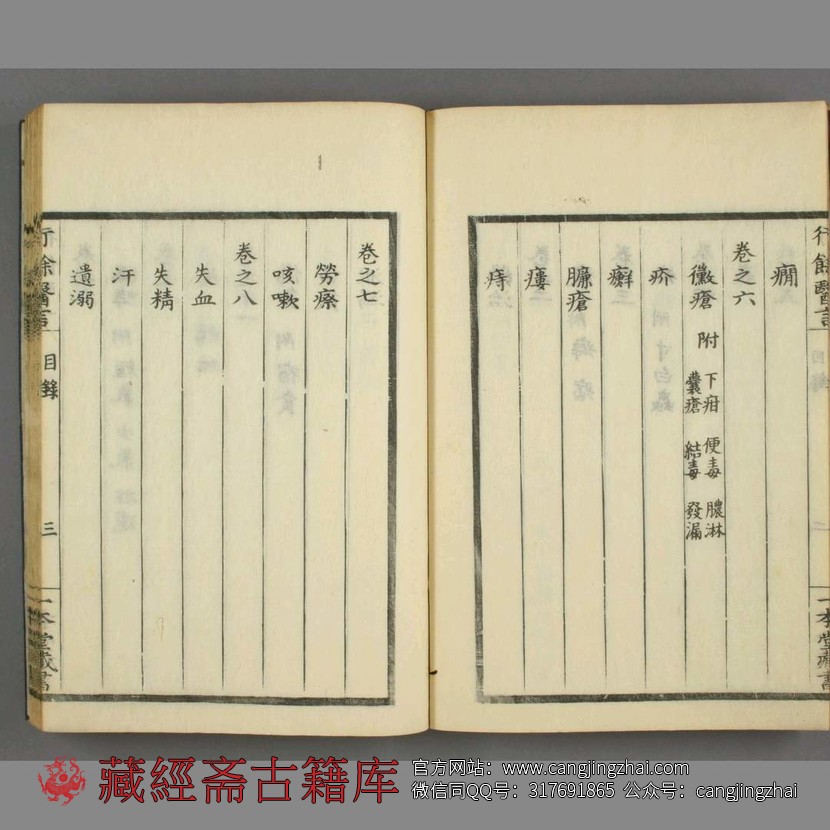 行餘醫言
目錄
二
一本堂藏書
癇
卷之六
黴瘡 附 下疳 便毒 膿淋
囊瘡 結毒 發漏
疥
癬
臁瘡
瘻
痔
卷之七
勞瘵
咳嗽
卷之八
失血
失精
汗
遺溺
行餘醫言
目錄
三
一本堂藏書
藏經斋古籍库
官方网站：www.cangjingzhai.com
微信同QQ号：317691865 公众号：cangjingzhai